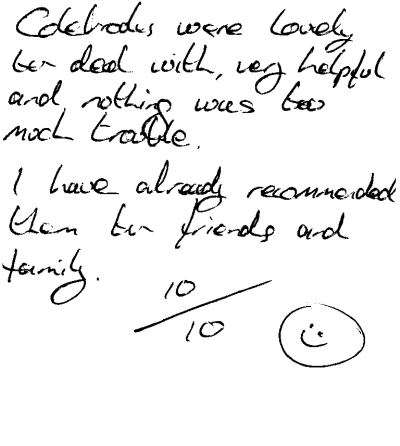 were lovely
to deal with, very helpful
and nothing was too
much trouble.
I have already recommended
them to friends and
family.
10/10